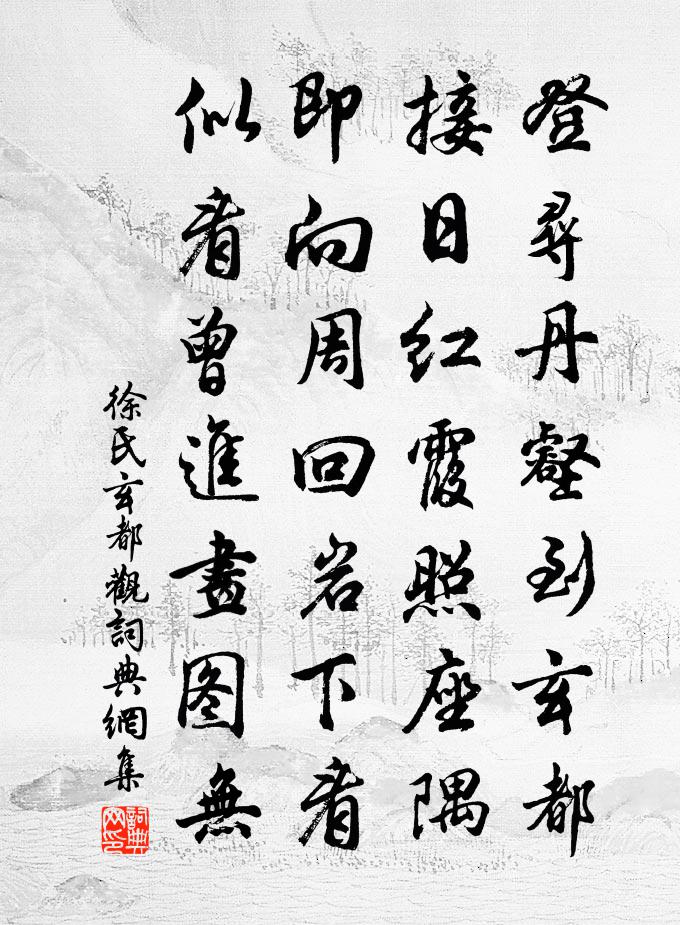 登尋丹壑到玄都
接日紅霞照座隅
即向周回岩下看
似看曾進畫图無
徐氏玄都觀詞典網集
詞典网印